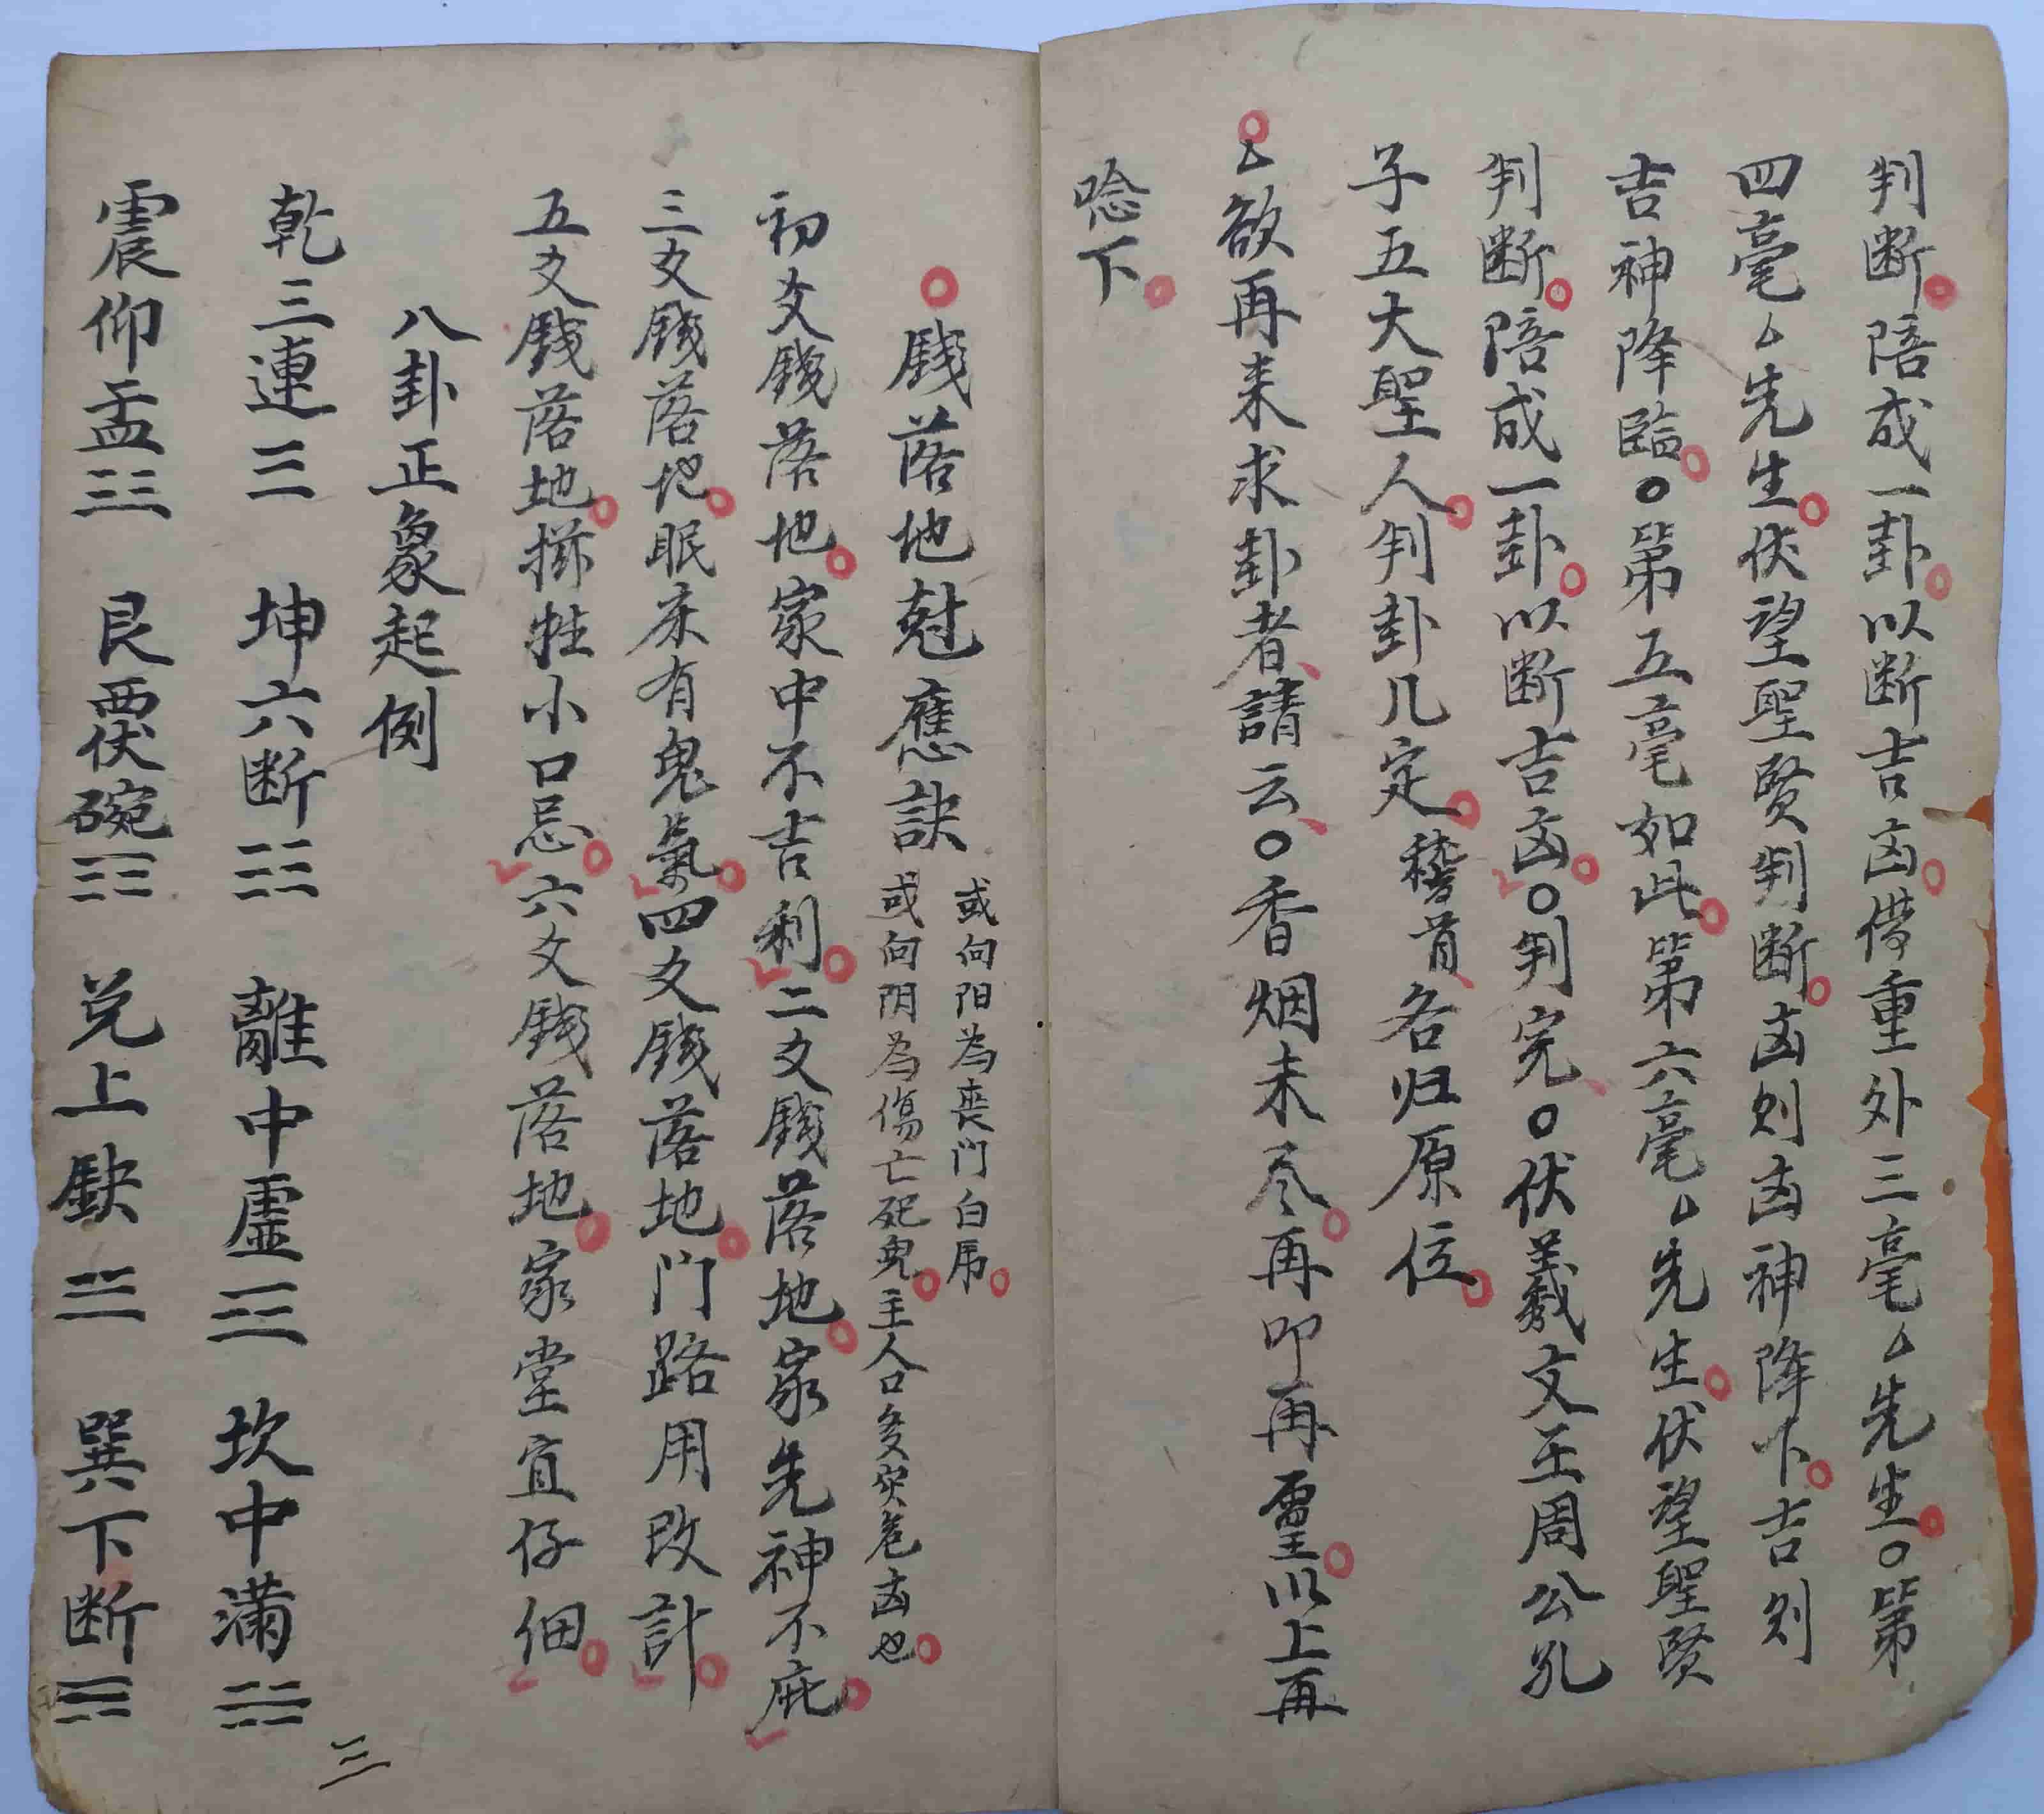 判断。陪成一卦。以断吉凶。借重外三毫厶先生。〇第
四毫厶先生。伏望聖賢判断。凶则凶神降下。吉则
吉神降臨。〇第五毫如此。第六毫厶先生。伏望聖賢
判断。陪成一卦。以断吉凶。〇判完、〇伏羲文王周公孔
子五大聖人。判卦几定。稽首、各归原位。
〇厶欲再来求卦者、請云、〇香烟未尽。再叩再重。以上再
唸下。
〇錢落地尅應訣
或向阳為喪门白虎。
或向阴為傷亡死鬼。主人口多灾危凶也。
初爻錢落地。家中不吉利。二爻錢落地。家先神不庇。
三爻錢落地。眠床有鬼氣。四爻錢落地。门路用改計。
五爻錢落地。牲小口忌。六爻錢落地。家堂宜仔细。
八卦正象起例
乾三連☰ 坤六断☷ 離中虚☲ 坎中满☵
震仰盂☳ 艮覆碗☶ 兑上缺☱ 巽下断☴
三